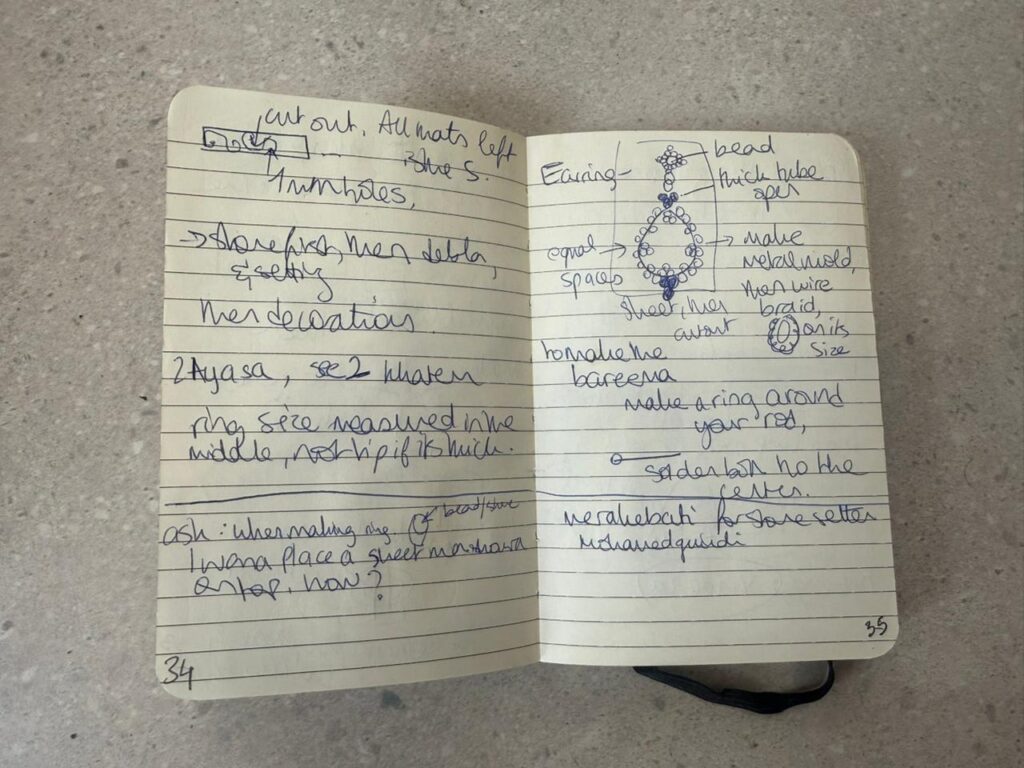 cut out. All mats left
1mm holes,
→ stone first, then debla,
& setting
then decoration.
2 Ayasa, se2 khatem
ring size measured in the
middle, not tip if its thick.
ask: when making ring. bead/stone
I wana place a sheet then shown
on top. how?
34
Earing-
bead
thick tube
open
equal
spaces
make
metal mold,
then wire
braid,
on its
size
sheet, then
cutout
to make the
bareema
make a ring around
your rod,
solder both to the
center.
merakebati for stone setter
35